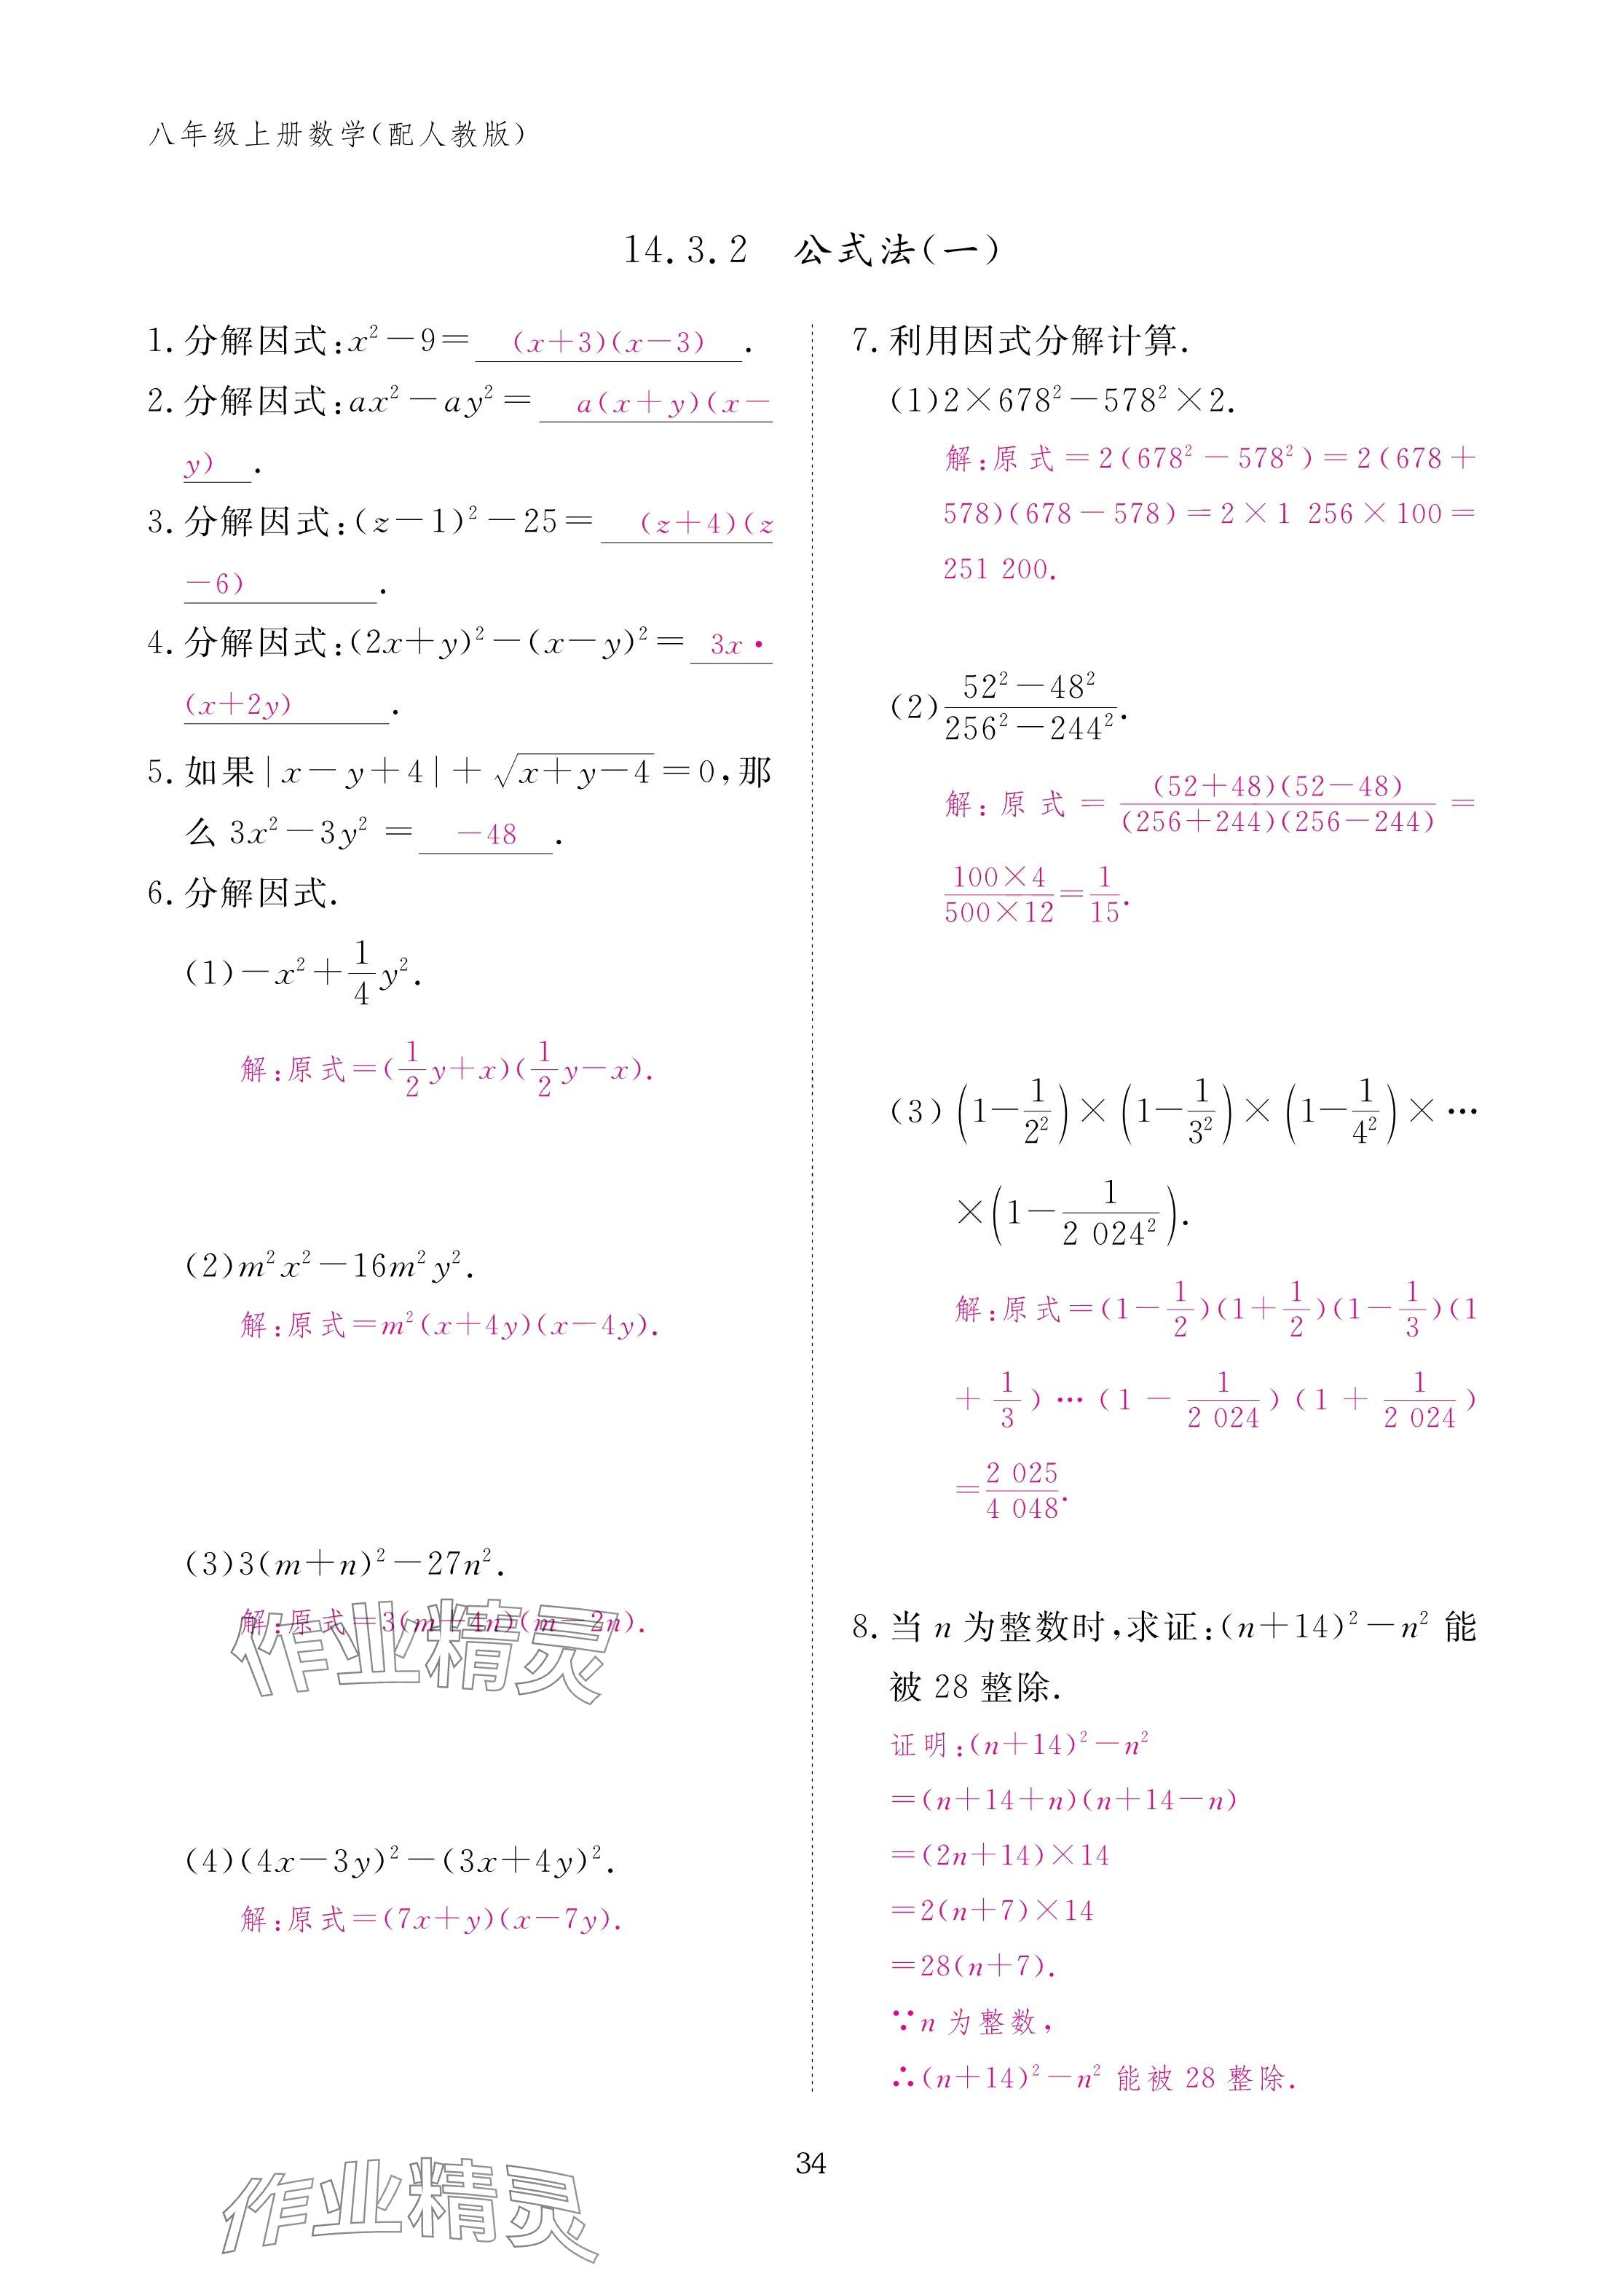 八年级上册数学(配人教版)
14.3.2 公式法(一)
1. 分解因式:x²-9= (x+3)(x-3) .
2. 分解因式:ax²-ay²= a(x+y)(x-
y) .
3. 分解因式:(z-1)²-25= (z+4)(z
-6) .
4. 分解因式:(2x+y)²-(x-y)²= 3x·
(x+2y) .
5. 如果|x-y+4|+√(x+y-4)=0,那
么 3x²-3y²= -48 .
6. 分解因式.
(1)-x²+1/4 y².
解:原式=(1/2 y+x)(1/2 y-x).
(2)m²x²-16m²y².
解:原式=m²(x+4y)(x-4y).
(3)3(m+n)²-27n².
解:原式=3(m+4n)(m-2n).
作业精灵
(4)(4x-3y)²-(3x+4y)².
解:原式=(7x+y)(x-7y).
7. 利用因式分解计算.
(1)2×678²-578²×2.
解:原式=2(678²-578²)=2(678+
578)(678-578)=2×1 256×100=
251 200.
(2)(52²-48²)/(256²-244²).
解:原式=(52+48)(52-48)/(256+244)(256-244)=
100×4/500×12=1/15.
(3)(1-1/2²)×(1-1/3²)×(1-1/4²)×…
×(1-1/2 024²).
解:原式=(1-1/2)(1+1/2)(1-1/3)(1
+1/3)…(1-1/2 024)(1+1/2 024)
=2 025/4 048.
8. 当 n 为整数时,求证:(n+14)²-n² 能
被 28 整除.
证明:(n+14)²-n²
=(n+14+n)(n+14-n)
=(2n+14)×14
=2(n+7)×14
=28(n+7).
∵n 为整数,
∴(n+14)²-n² 能被 28 整除.
34
作业精灵